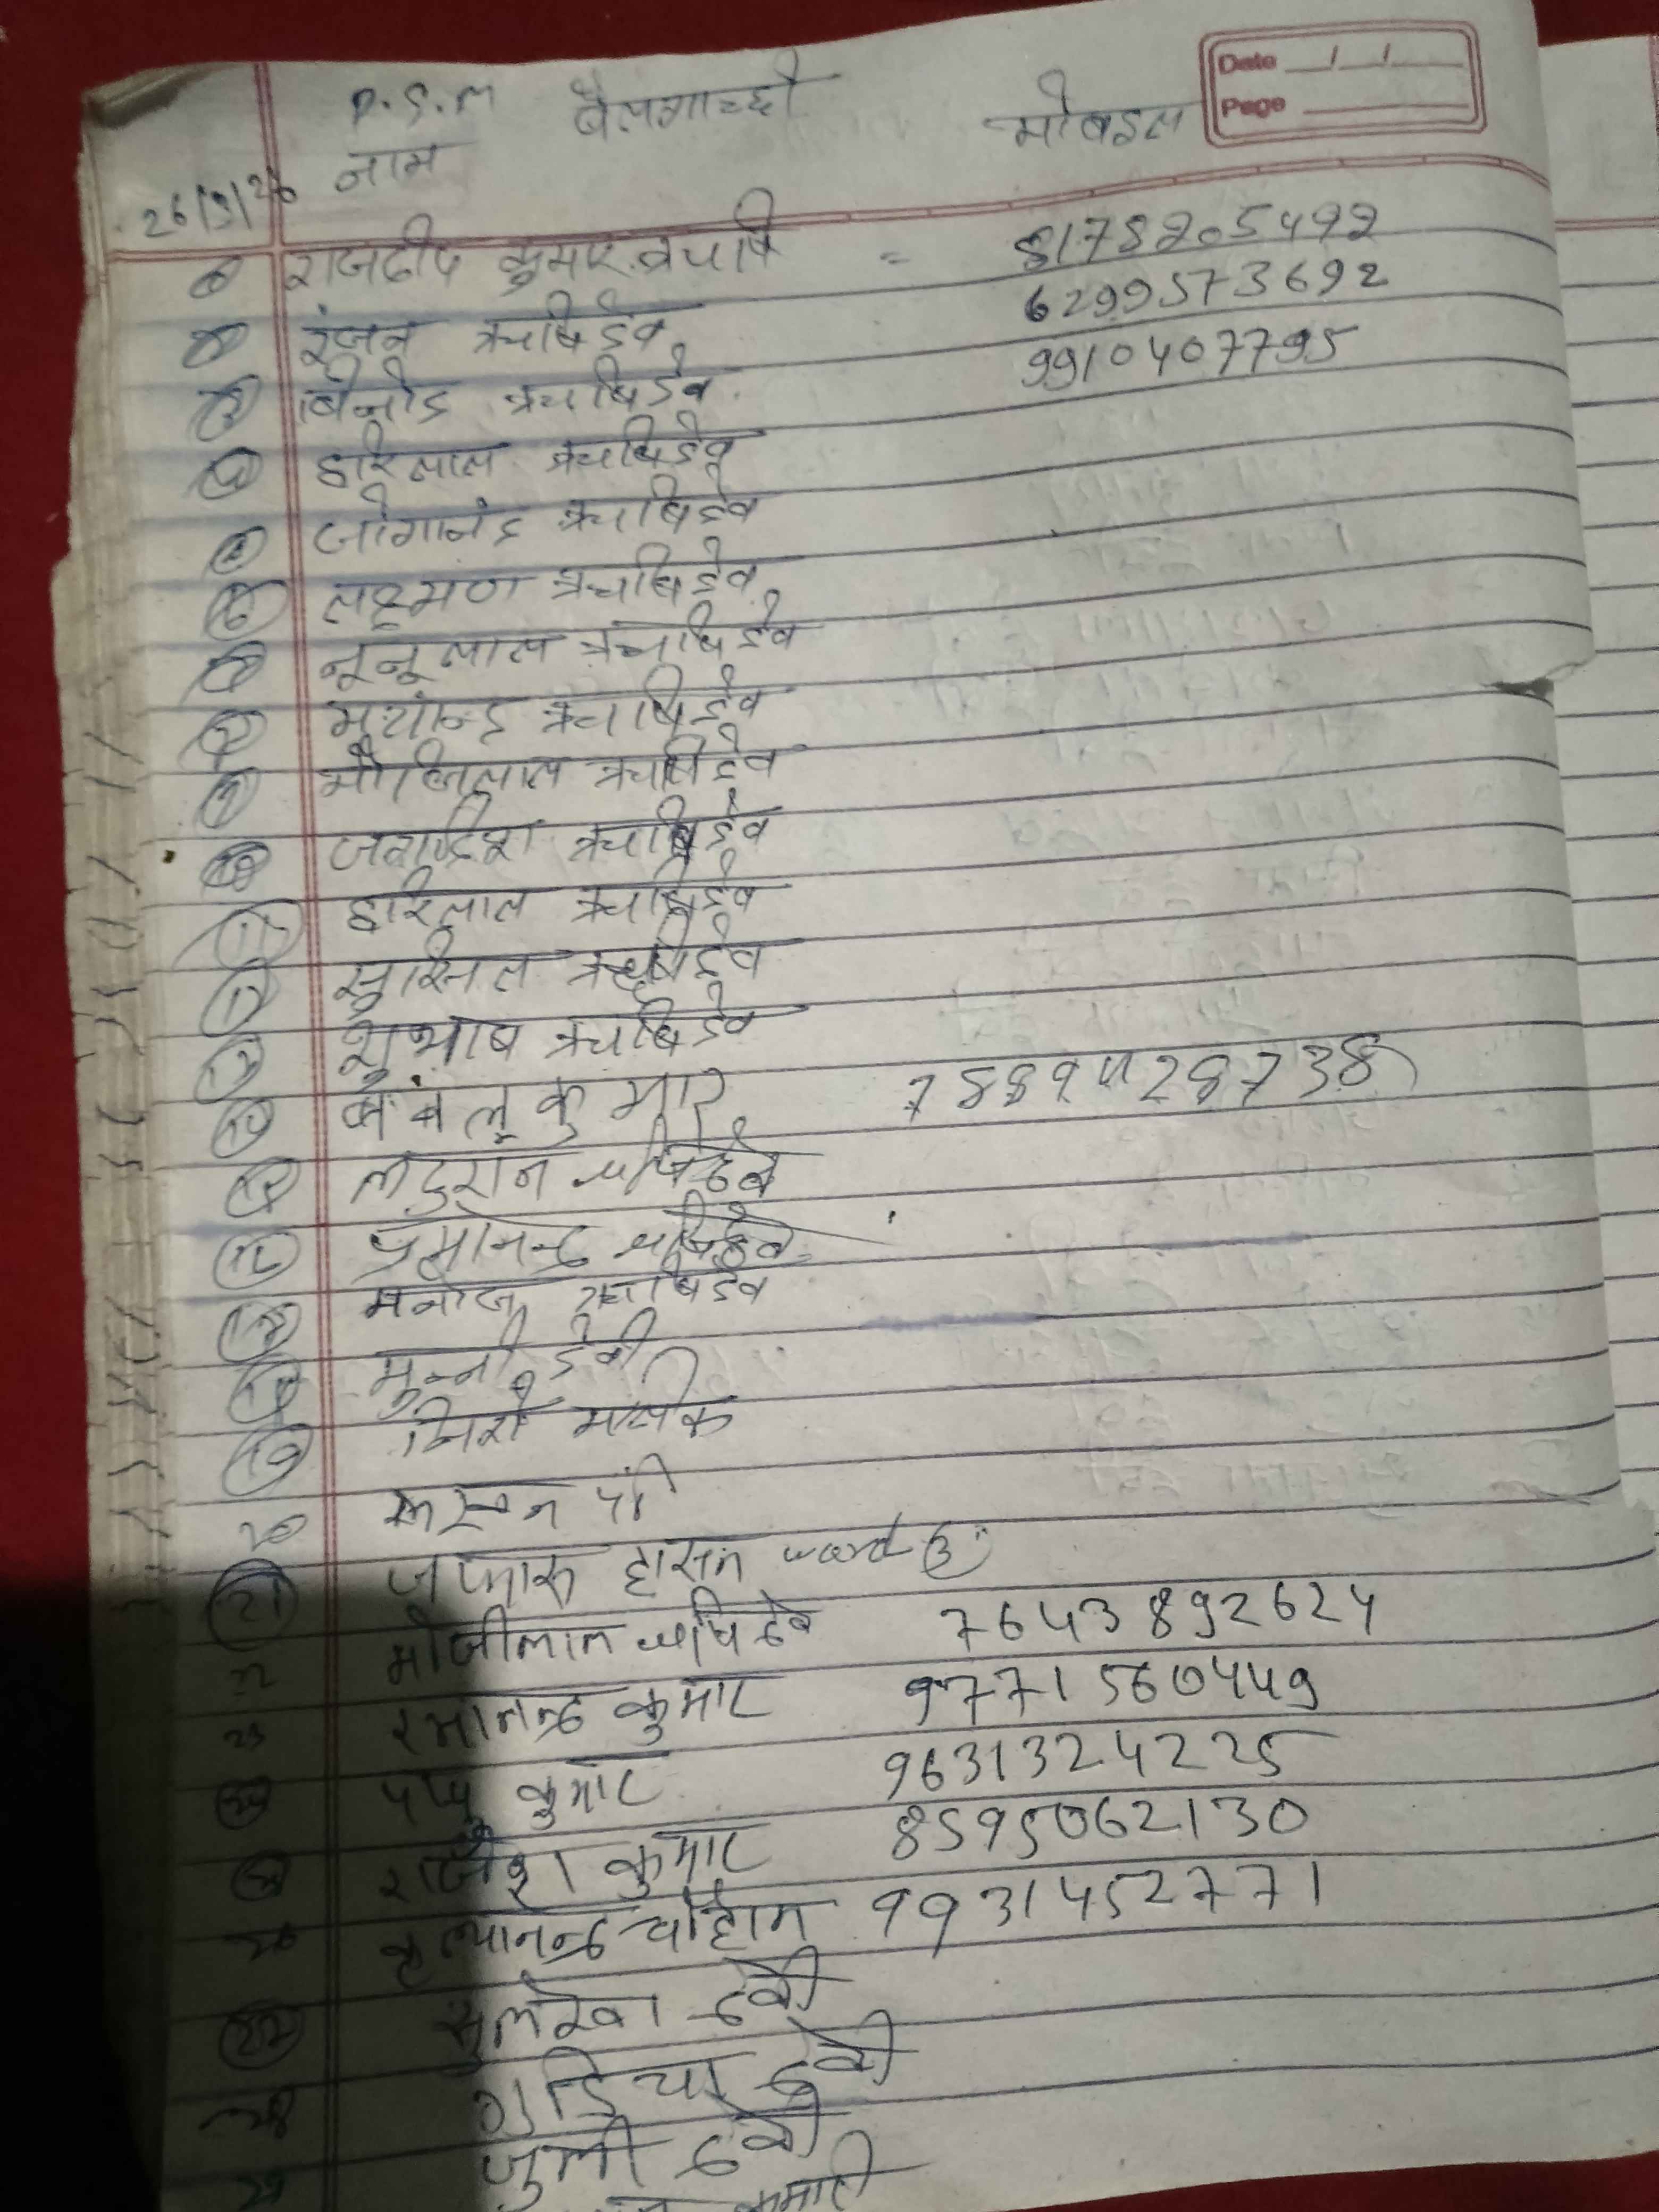 Date __/__/__
Page
P.S.M बेलगाच्छी
26/3/26 नाम मोबाइल
राजदीप कुमार ऋषि = 8178205492
रंजन ऋषिदेव 6299573692
बिनोद ऋषिदेव 9910407795
हरिलाल ऋषिदेव
जोगानंद ऋषिदेव
6 लक्ष्मण ऋषिदेव
नूनूलाल ऋषिदेव
ऋषिदेव
9 मौजिलाल ऋषिदेव
10 जगदिश ऋषिदेव
11 हरिलाल ऋषिदेव
12 सुसित ऋषिदेव
13 सुभाष ऋषिदेव
14 बंबलू कुमार
15 ऋषिदेव
16 प्रमानन्द ऋषिदेव
17 मनोज ऋषिदेव
18 मुन्नी देवी
19 मलीक
20
21 हासन ward 3
22 मोजीलाल ऋषिदेव 7643892624
23 रमानन्द कुमार 9771560449
24 पप्पु कुमार 9631324225
25 राजेश कुमार 8595062130
26 कृत्यानन्द चौहान 9931452771
27 सुलेखा देवी
28 गुडिया देवी
29 जुली देवी
कुमारी